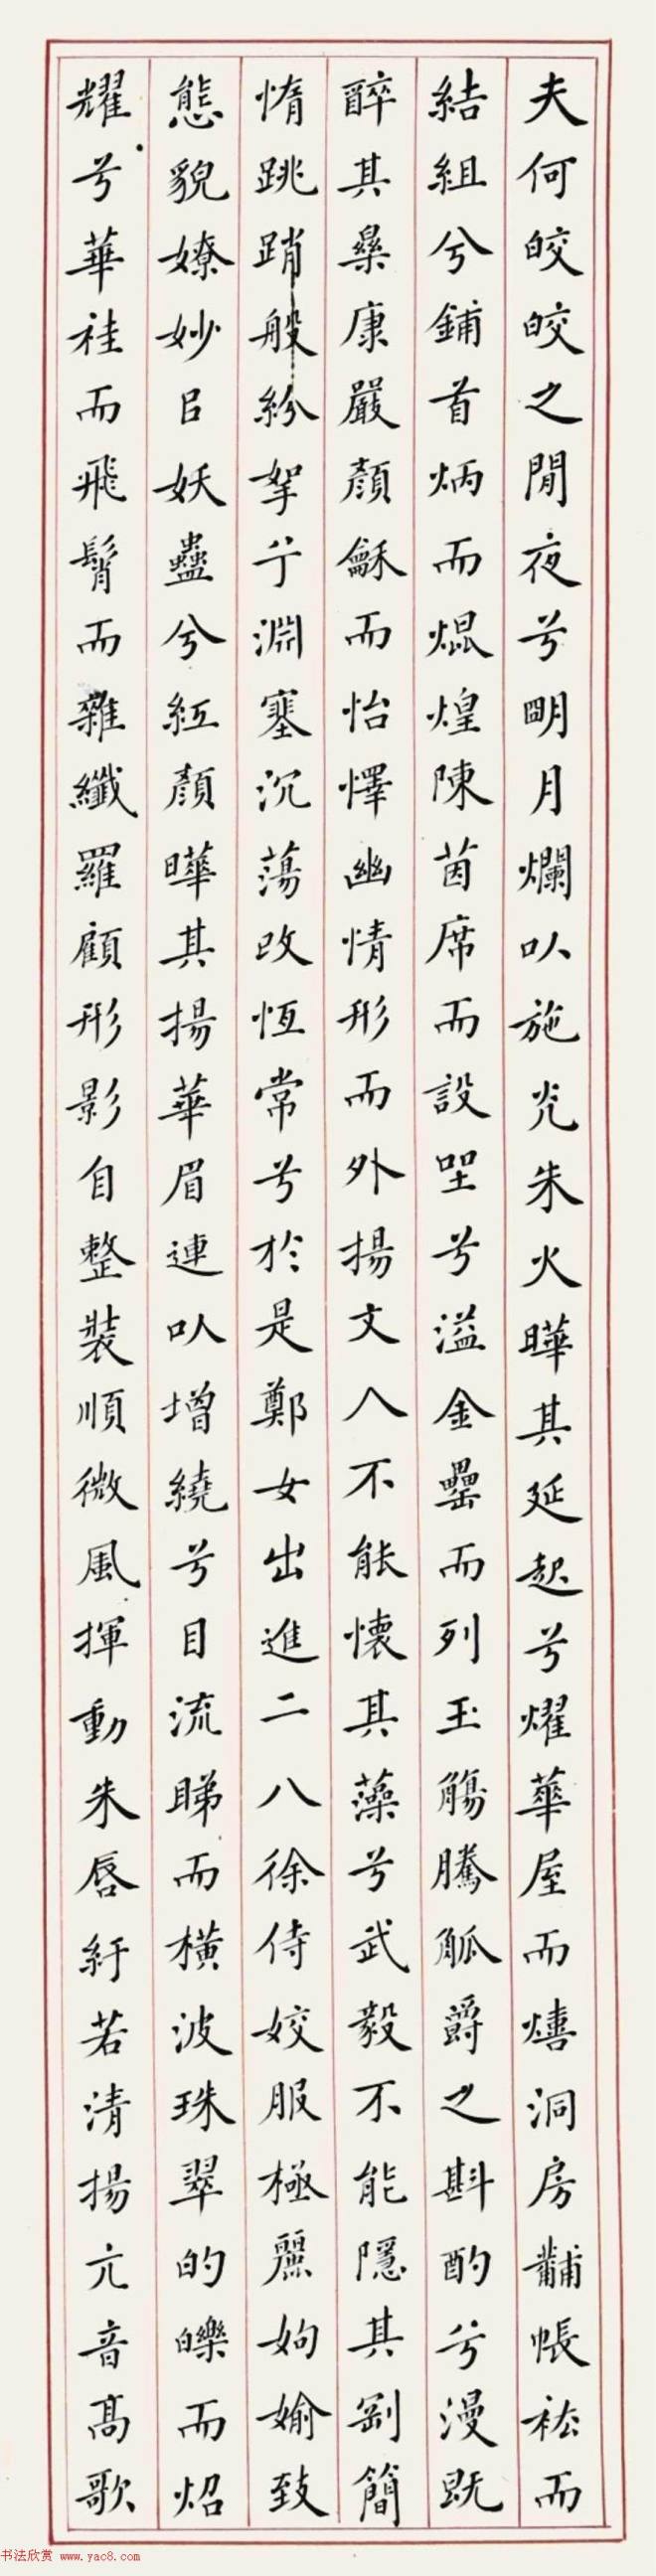 夫何皎皎之閒夜兮朙月爛㕥施光朱火曄其延起兮燿華屋而熺洞房黼帳袪而
結組兮鋪首炳而焜煌陳茵席而設坐兮溢金罍而列玉觴騰觚爵之斟酌兮漫既
醉其樂康嚴顏龢而怡懌幽情形而外揚文人不能懷其藻兮武毅不能隱其剛簡
惰跳踃般紛挐兮淵塞沉蕩改恆常兮於是鄭女出進二八徐侍姣服極麗姁媮致
態貌嫽妙㠯妖蠱兮紅顏曄其揚華眉連㕥增繞兮目流睇而橫波珠翠的皪而炤
耀兮華袿而飛髾而雜纖羅顧形影自整裝順微風揮動朱唇紆若清揚亢音高歌
书法欣赏 www.yac8.com